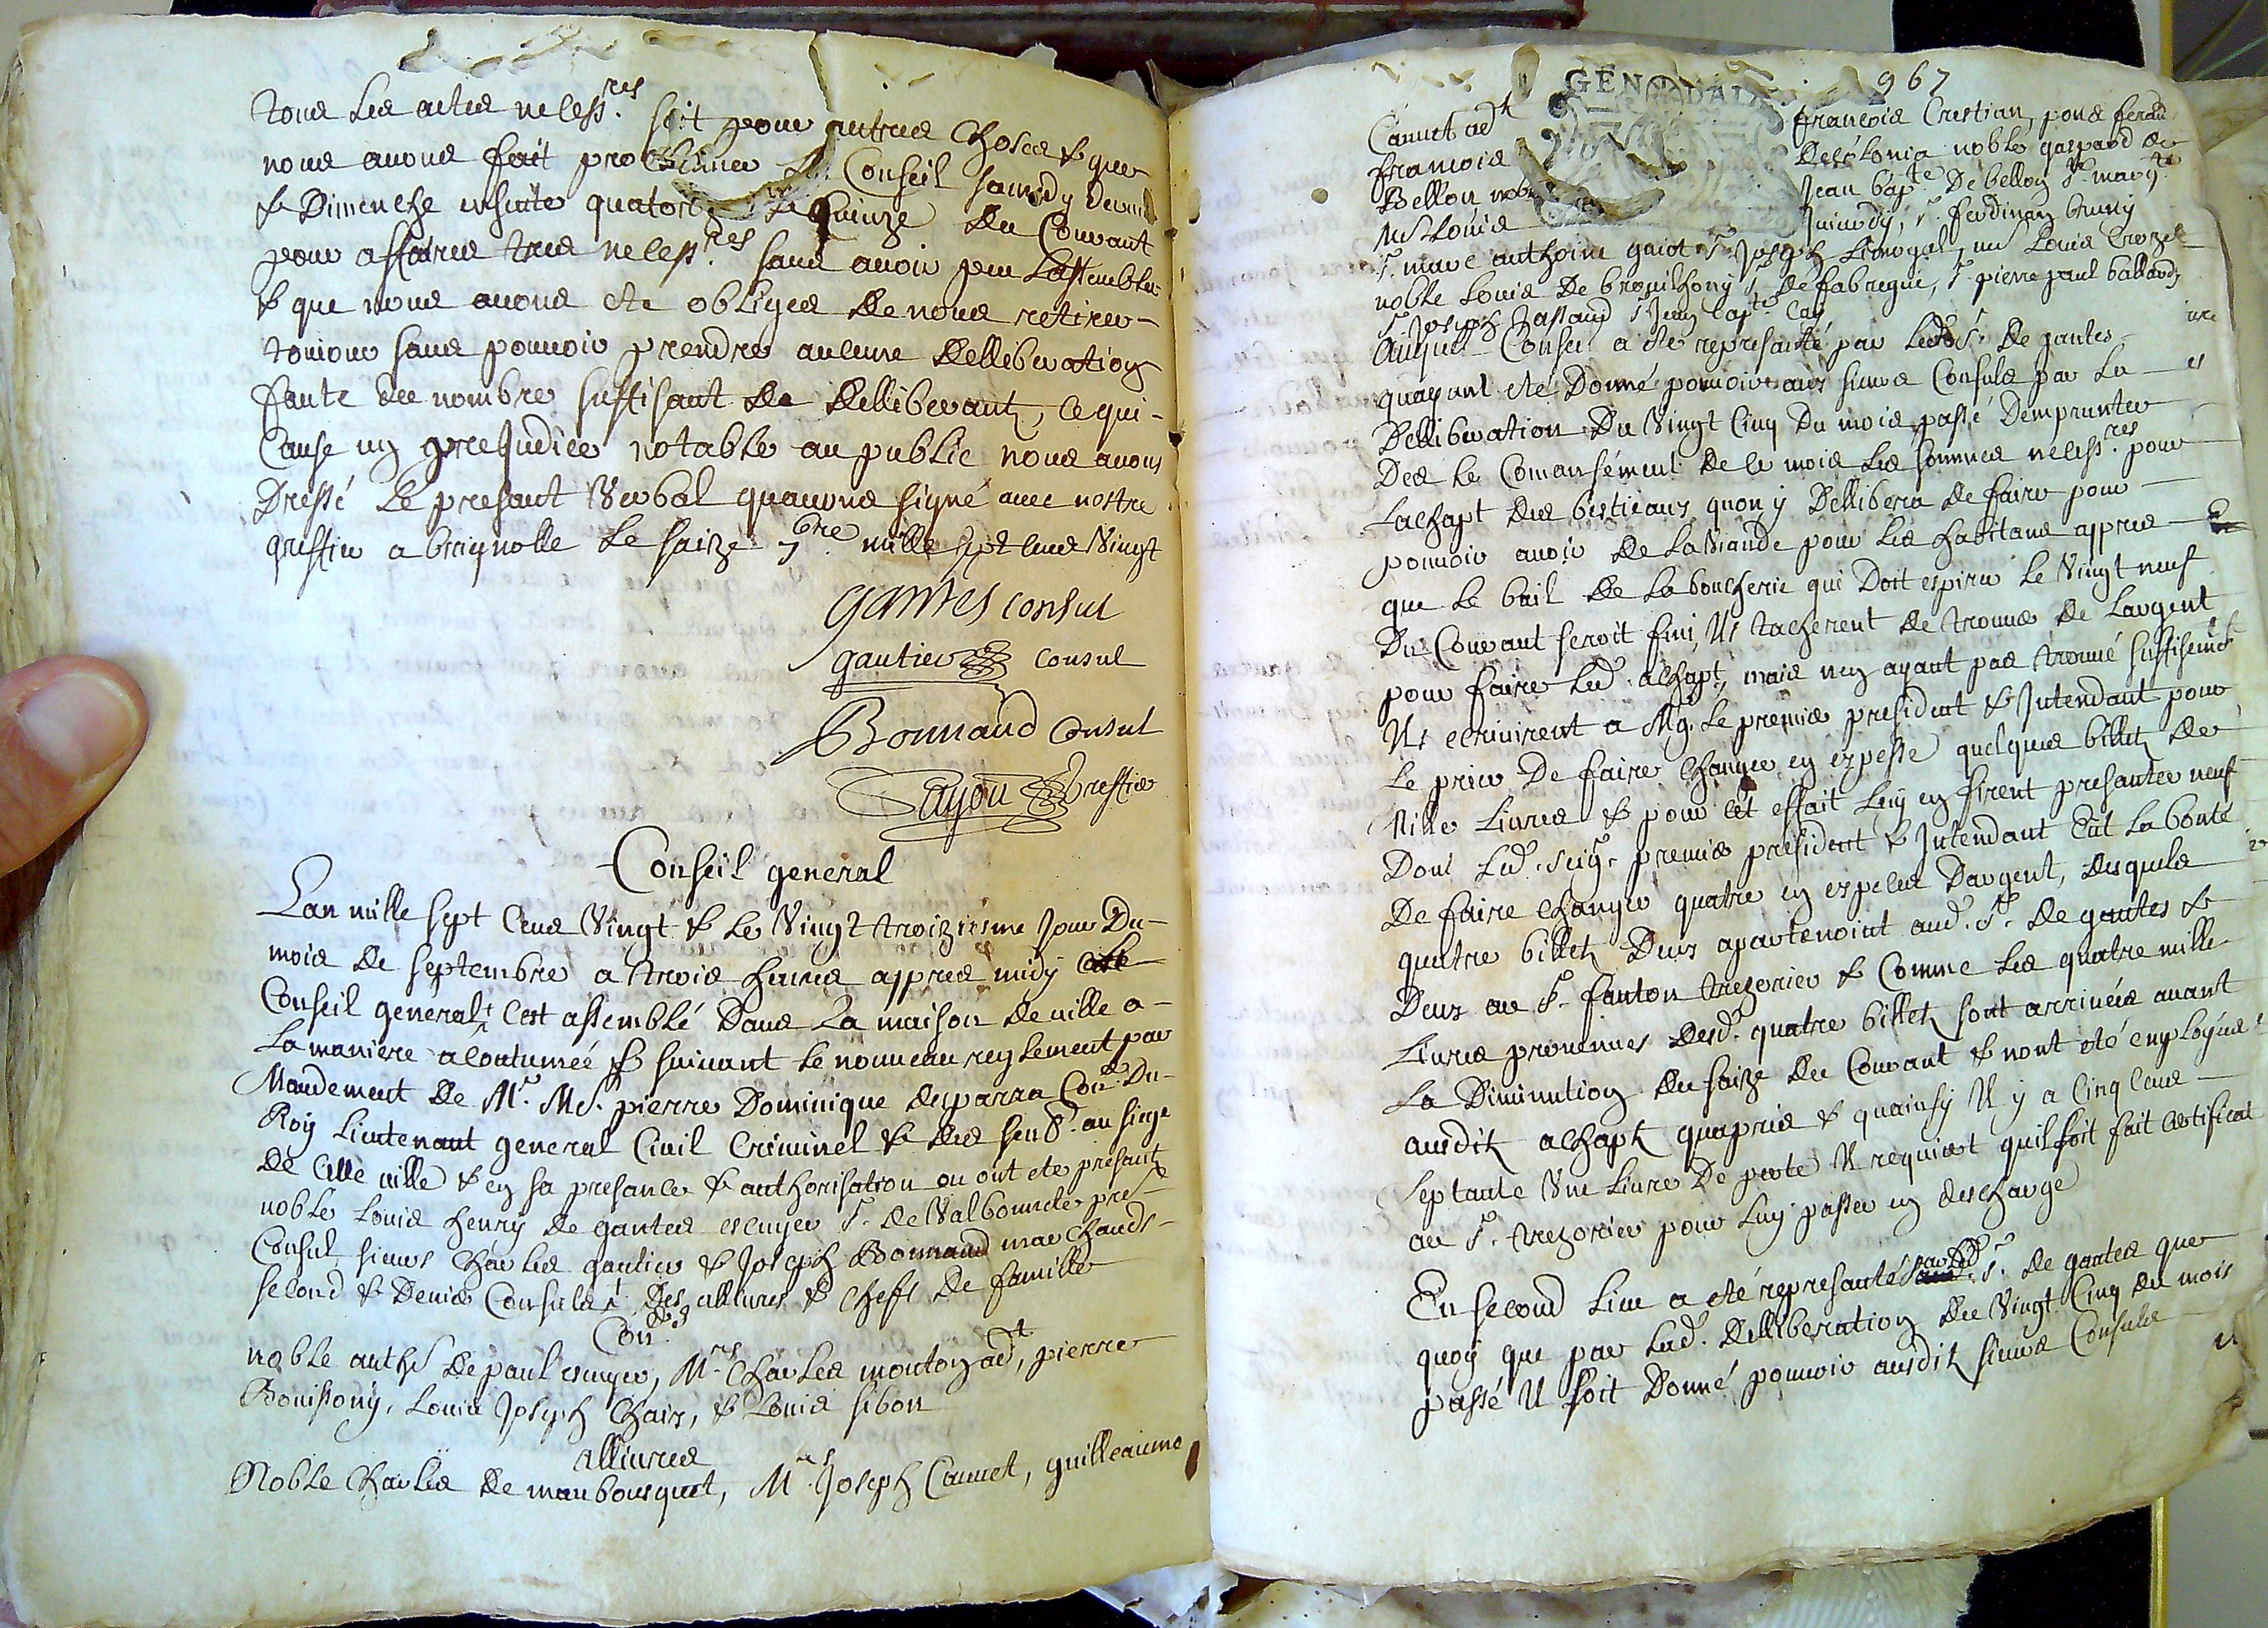 tous les actes necess.res soit pour autres choses & que
nous avons fait proclamer le Conseil samedy dernier
& Dimenche ensuite quatorze & quinze du Courant
pour affaires tres necess.res sans avoir peu l'assembler
& que nous avons ete obliges de nous retirer
tousjour sans pouvoir prendre aucune delliberation
faute du nombre suffisant de delliberantz, ce qui
Cause un prejudice notable au public nous avons
Dressé le presant verbal qu'avons signé avec nostre
greffier a brignolle le saize 7bre mille sept cens vingt
gantes consul
gautier consul
Bonnaud Consul
Fayon Greffier
Conseil general
Lan mille sept Cens Vingt & le Vingt troiziesme jour Du
mois de septembre a trois heures appres midy
Conseil general c'est assemblé Dans la maison de ville a
la maniere acoutumée & suivant le nouveau reglement par
Mandement de Mr. Me. pierre Dominique desparra Con.er Du
Roy Lieutenant general Civil Criminel & des sen.s au siege
de cette ville & en sa presance & authorisation ou ont ete presants
noble Louis henry de gantes escuyer Sr. de Valbonnete pre.r
Consul, sieurs Charles gautier & Joseph Bonnaud marchands
second & Denier Consulz, Des allivres & Chefs de famille
Con.ers
noble anths. de paul escuyer, Mres. Charles monton adt, pierre
Bouissony, Louis Joseph Chaix, & Louis sibon
Allivres
Noble Charles de maubousquet, Mres. Joseph Caunet, guilleaume
967
GEN DAL
Caunet adt francois Crestian, pons feraud
francois de Colonia noble gaspard de
Bellon noble Jean bapte. De bellon Sr. marg.te
Me. Louis Juiurdy, Sr. ferdinan bruny
Sr. marc anthoine guiot Sr. Joseph Limogal, me Louis Crozel
noble Louis De brouilhony Sr. de fabregue, Sr. pierre paul ballardy
Sr. Joseph Jassaud Sr Jean bapte. Cay
Auquel Conseil a ete represanté par led. Sr. De gantes
quayant eté Donné pouvoir aux sieurs Consuls par la
Delliberation Du Vingt Cinq Du mois passé D'emprunter
Des le Comansement de ce mois les sommes necess.res pour
Lachapt des bestieaux quon y Dellibera de faire pour
pouvoir avoir de la Viande pour les habitans appres
que le bail de la boucherie qui Doit espirer le Vingt neuf
Du Courant seroit fini, Ils tacherent de trouver de Largent
pour faire led. achapt, mais nen ayant pas trouvé suffisemt
Ils ecrivirent a Mgr. le premier president & Intendant pour
le prier De faire changer en espesse quelques billetz de
Mille Livres & pour cet effait luy en firent presanter neuf
Dont led. seigr. premier president & Intendant Eut la bonté
De faire changer quatre en especes D'argent, desquels
quatre billetz Deux apartenoint aud. Sr. De gantes &
Deux au Sr. fanton trezorier & Comme les quatre mille
Livres provenues desd. quatre billetz sont arrivées avant
la Diminution du saize du Courant & nont eté employées
ausditz achaptz quapres & quainsy Il y a Cinq Cens
septante Une Livre De perte Il requiert quil soit fait Certificat
au Sr. trezorier pour luy passer en descharge
En second Lieu a eté represanté par led. Sr. de gantes que
quoy que par lad. Delliberation du Vingt Cinq du mois
passé Il soit Donné pouvoir ausditz sieurs Consuls